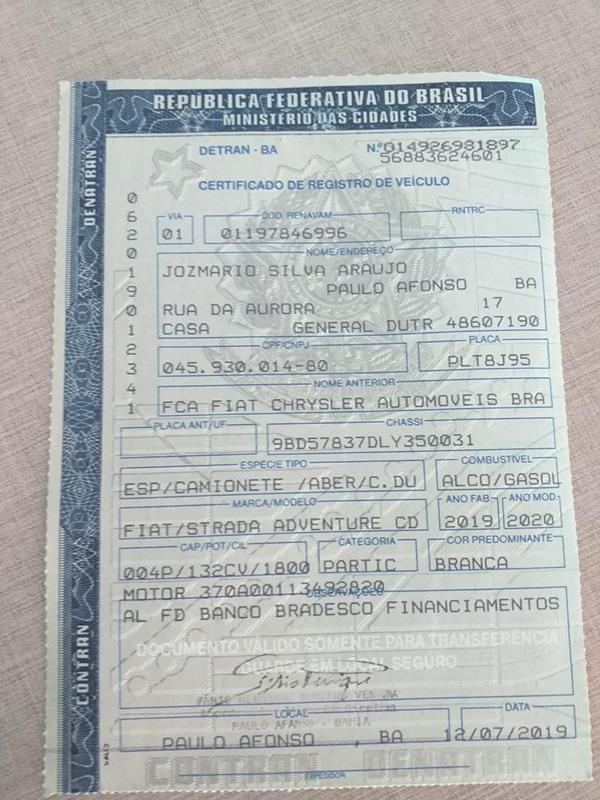 REPÚBLICA FEDERATIVA DO BRASIL
MINISTÉRIO DAS CIDADES
DENATRAN
DETRAN - BA Nº 014926981897
56883624601
CERTIFICADO DE REGISTRO DE VEÍCULO
062019012341
VIA CÓD. RENAVAM RNTRC
01 01197846996
NOME/ENDEREÇO
JOZMARIO SILVA ARAUJO
PAULO AFONSO BA
RUA DA AURORA 17
CASA GENERAL DUTR 48607190
CPF/CNPJ PLACA
045.930.014-80 PLT8J95
NOME ANTERIOR
FCA FIAT CHRYSLER AUTOMOVEIS BRA
PLACA ANT/UF CHASSI
9BD57837DLY350031
ESPÉCIE TIPO COMBUSTÍVEL
ESP/CAMIONETE /ABER/C.DU ALCO/GASOL
MARCA/MODELO ANO FAB ANO MOD.
FIAT/STRADA ADVENTURE CD 2019 2020
CAP/POT/CIL CATEGORIA COR PREDOMINANTE
004P/132CV/1800 PARTIC BRANCA
MOTOR 370A00113492820
OBSERVAÇÕES
AL FD BANCO BRADESCO FINANCIAMENTOS
DOCUMENTO VÁLIDO SOMENTE PARA TRANSFERÊNCIA
GUARDE EM LOCAL SEGURO
PAULO AFONSO - BAHIA
LOCAL DATA
PAULO AFONSO , BA 12/07/2019
CONTRAN DENATRAN
EXPEDIDOR
CONTRAN